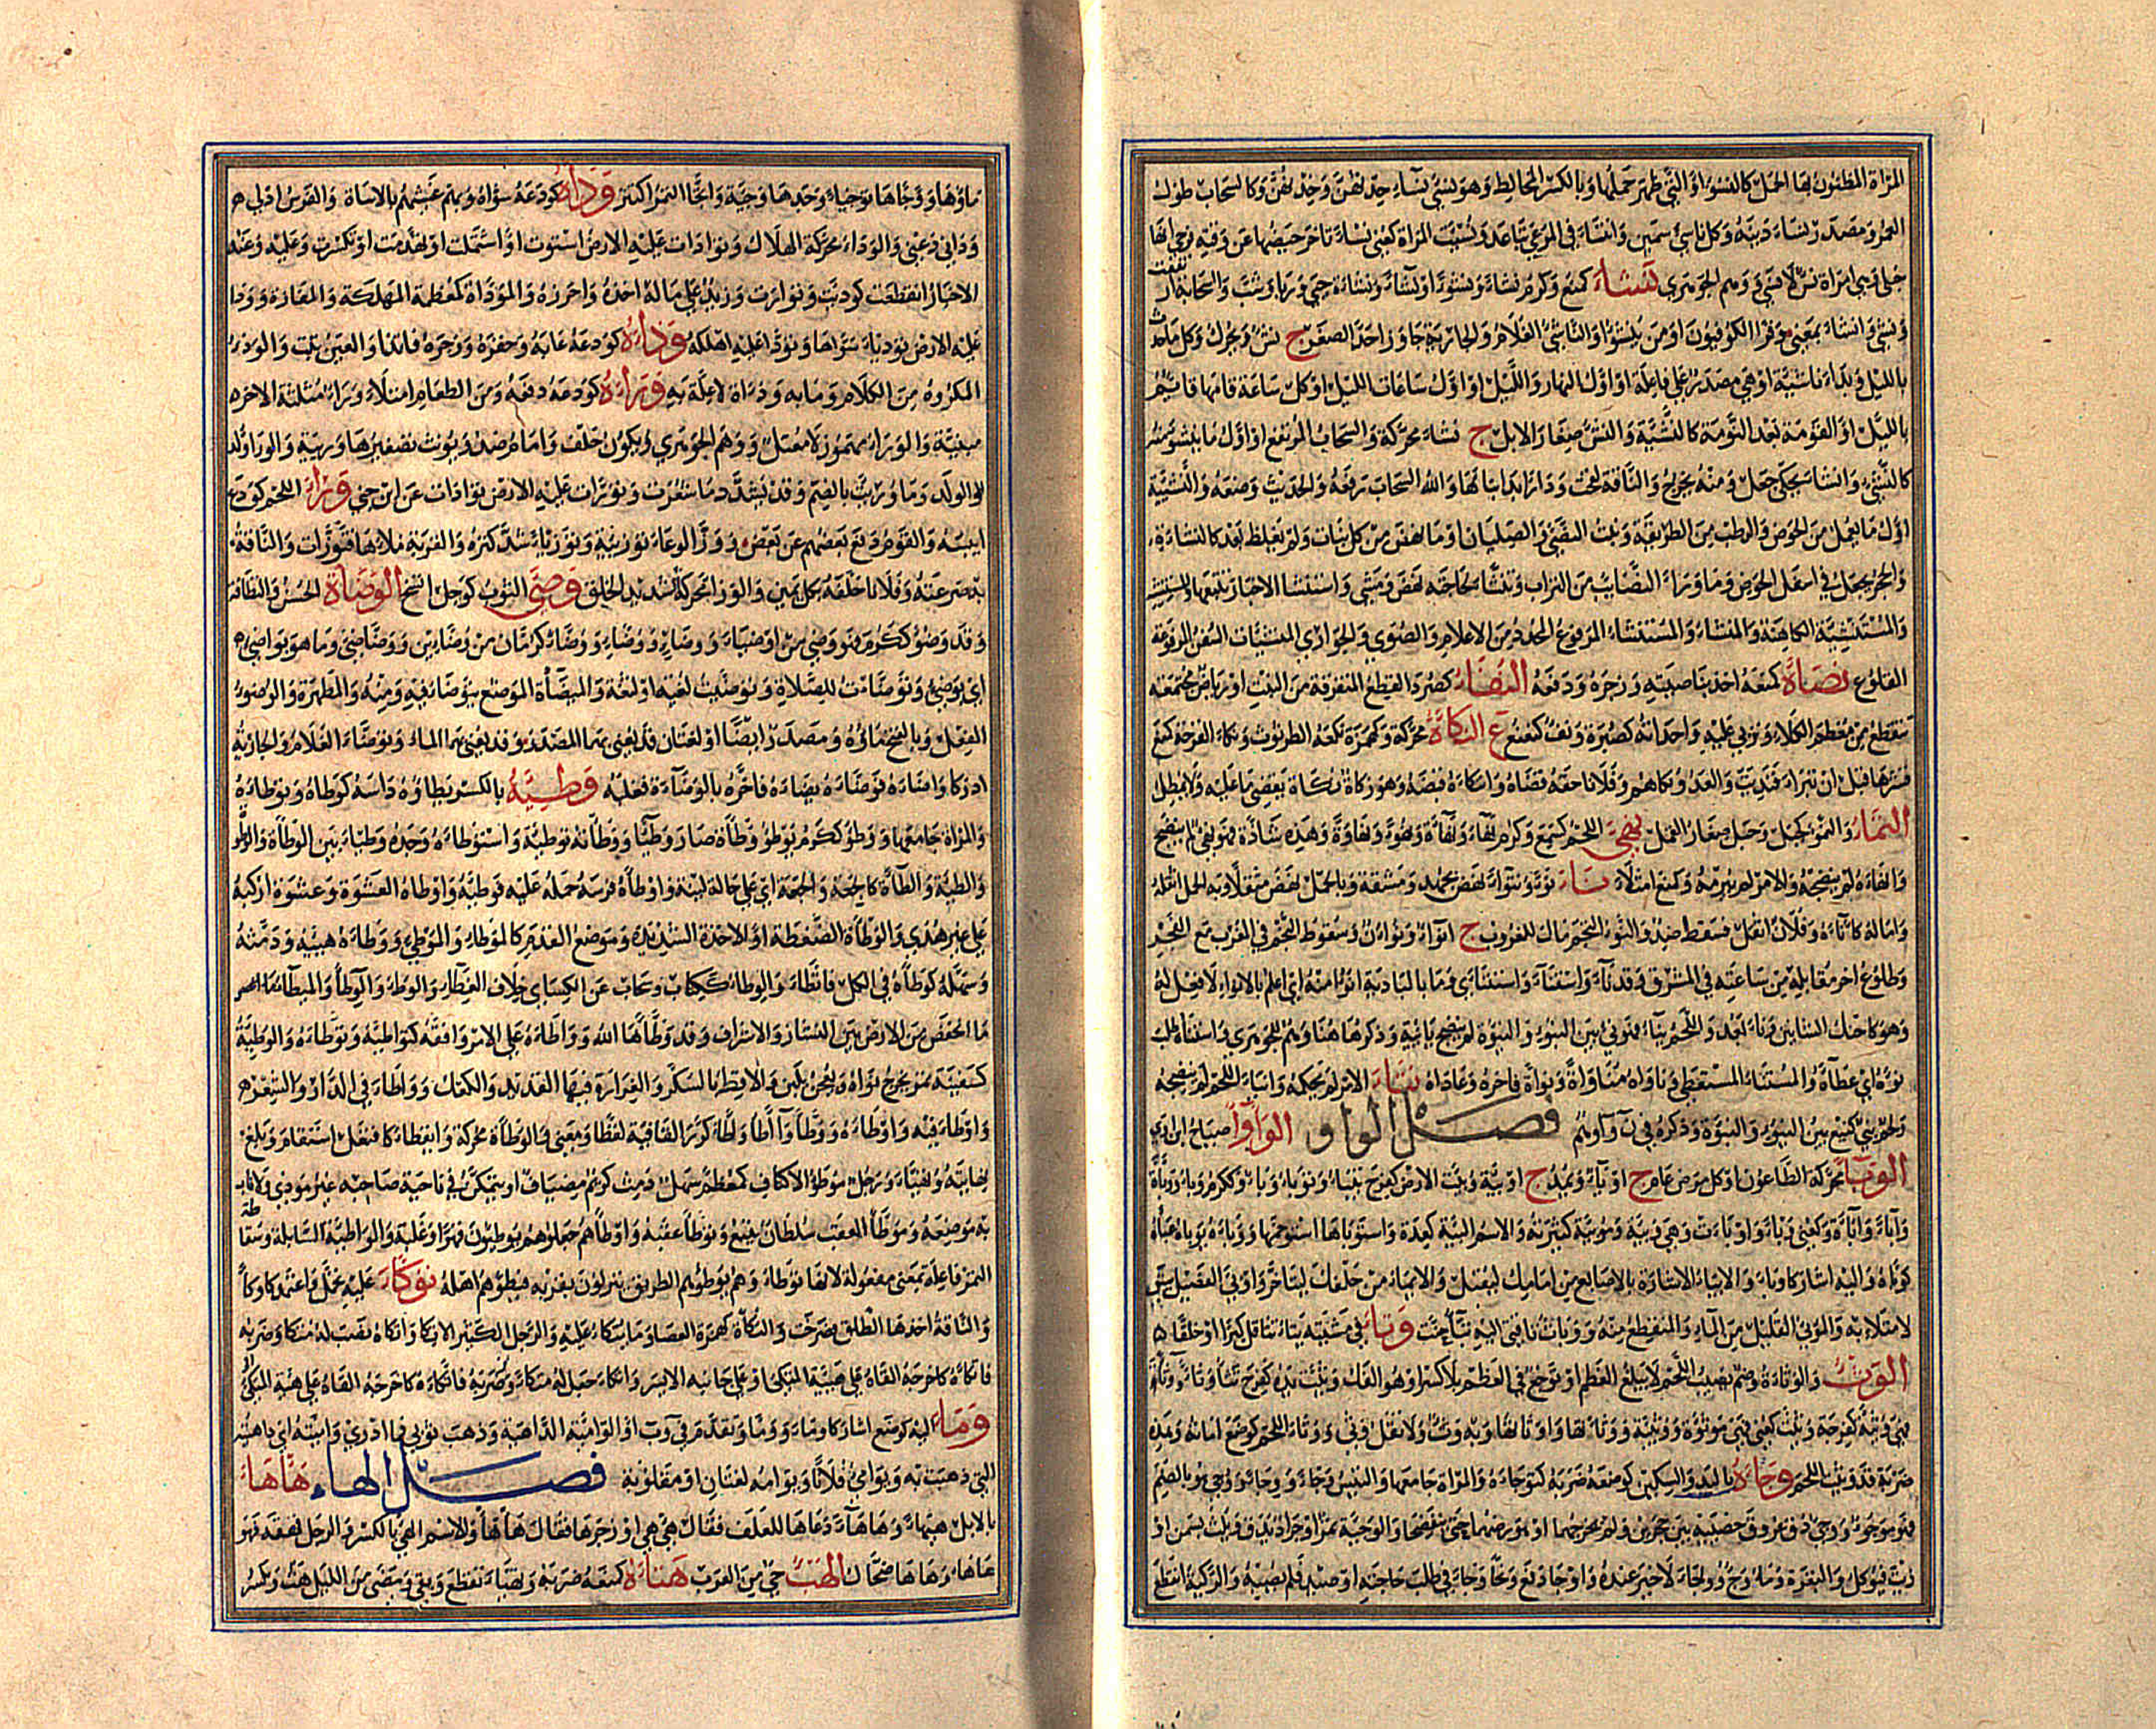 المرأة المظنون بها الحمل كالنسوء او التي ظهر حملها وبالكسر المخالط وهو نسئ نساء حدث لهن وخدن لهن وكالسحاب طول
العمر ومصدر نساء دينه وكل ناسئ سمين وانتساء في المرعى تباعد ونسئت المرأة كعني نساء تأخر حيضها عن وقته فرجي انها
حبلى وهي امرأة نسء لا نسئ ووهم الجوهري نشاء كمنع وكرم نشاء ونشوءا ونشاء ونشاءة حيي وربا وشب والسحابة ارتفعت
ونشئ وانشاء بمعنى وقرا الكوفيون اومن ينشؤا والناشئ الغلام والجارية جاوزا حد الصغر ج نشء ويحرك وكل ما حدث
بالليل وبداء ناشئة او هي مصدر على فاعلة او اول النهار والليل او اول ساعات الليل او كل ساعة قامها قائم
بالليل او القومة بعد النومة كالنشيئة والنشء صغار الابل ج نشاء محركة والسحاب المرتفع او اول ما ينشؤ منه
كالنشئ وانشا يحكي جعل ومنه خرج والناقة لقحت ودارا بدا بناءها والله السحاب رفعه والحديث وضعه والنشيئة
اول ما يعمل من الحوض والرطب من الطريفة ونبت النصي والصليان او ما نهض من كل نبات ولم يغلظ بعد كالنشاءة
والحجر يجعل في اسفل الحوض وما وراء النصائب من التراب وتنشا لحاجته نهض ومشى واستنشا الاخبار تتبعها
والمستنشئة الكاهنة والمنشاء والمستنشاء المرفوع المحدد من الاعلام والصوى والجواري المنشئات السفن المرفوعة
القلوع نصاة كمنعه اخذ بناصيته وزجره ودفعه النفاء كصرد القطع المتفرقة من النبت او رياض مجتمعة
تنقطع من معظم الكلاء وتربي عليه واحدته كصبرة ونفء كنفع ع النكاة محركة وكهمزة نكعة الطرثوث ونكاء القرحة كمنع
قشرها قبل ان تبراء فنديت والعدو نكاهم وفلانا حقه قضاه وانتكاءه قبضه وهو زكاة نكاة يقضي ما عليه ولا يمطل
النماء والنمؤ كجبل وحبل صغار القمل نهئ اللحم كسمع وكرم نهاء ونهاءة ونهوءة ونهاوة وهذه شاذة فهو نهئ لم ينضج
وانهاءه لم ينضجه والامر لم يبرمه وكمنع امتلاء ناء نوءا وتنواء نهض بجهد ومشقة وبالحمل نهض مثقلا وبه الحمل اثقله
واماله كاناءه وفلان اثقل فسقط ضد والنوء النجم مال للغروب ج انواء ونوءان وسقوط النجم في المغرب مع الفجر
وطلوع اخر مقابله من ساعته في المشرق وقد ناء واستناء واستناءى وما بالبادية انوء منه اي اعلم بالانواء ولا فعل له
وهو كاحنك الشاتين وناء بعد واللحم يناء فهو نئ بين النيوء والنيوءة لم ينضج يائية وذكرها هنا وهم للجوهري واستناءه طلب
نوءه اي عطاءه والمستناء المستعطى وناواه مناواة ونواء فاخره وعاداه نيا الامر لم يحكمه وانياء اللحم لم ينضجه
ولحم نئ كنيع بين النيوء والنيوءة وذكره في ن و ا وهم فصل الواو الواوا صياح ابن آوى
الوبا محركة الطاعون او كل مرض عام ج اوباء ويمد ج اوبئة وبئت الارض كفرح تيباء وتوباء وباء وككرم وباء ووباءة
واباء واباءة وكعني وباء واوباءت وهي وبئة وموبئة كثيرته والاسم البئة كعدة واستوباها استوخمها ووباءه يوباءه عباه
كوباه واليه اشار كاوباء والايباء الاشارة بالاصابع من امامك ليقبل والايماء من خلفك ليتاخر واوبئ الفصيل سنق
لامتلائه والموبئ القليل من الماء والمنقطع منه ووباءت ناقتي اليه تباء حنت وتاء في مشيته يتاء تثاقل كبرا او خلقا
الوثء والوثاءة وصم يصيب اللحم لا يبلغ العظم او توجع في العظم بلا كسر او هو الفك وثئت يده كفرح تثاء وثاء ووثأ
فهي وثئة كفرحة ووثئت كعني فهي موثوءة ووثيئة ووثاءتها واوثاتها وبه وثء ولا تقل وثي ووثاء اللحم كوضع اماته وهذه
ضربة قد وثئت اللحم وجاءه باليد والسكين كوضعه ضربه كتوجاءه والمرأة جامعها والتيس وجاء ووجاء ووجئ هو بالضم
فهو موجوء ووجئ دق عروق خصييه بين حجرين ولم يخرجهما او هو رضهما حتى تنفضخا والوجيئة تمر او جراد يدق ويلت بسمن او
زيت فيؤكل والبقرة وماء وجء ووجاء لا خير عنده واوجاء دفع ونحى وجاء في طلب حاجته او صيد فلم يصبه والركية انقطع
ماؤها ووجاها توجيا وجدها وجية واتجا التمر اكتنز وداه كودعه سواه وبهم غشيهم بالاساءة والفرس ادلى ه
ودانى دعني والودا محركة الهلاك وتوادات عليه الارض استوت او اشتملت او تهدمت او تكسرت وعليه وعنه
الاخبار انقطعت كودئت وتوارت وزيد على ماله اخذه واحرزه والموداة كمعظمة المهلكة والمفازة وودا
عليه الارض توديئا سواها وتودا عليه اهلكه وذاءه كودعه عابه وحقره وزجره فاتذا والعين نبت والوذء
المكروه من الكلام وما به وذاة لا علة به وراءه كودعه دفعه ومن الطعام امتلاء ووراء مثلثة الاخر
مبنية والوراء مهموز لا معتل ووهم الجوهري ويكون خلف وامام ضد ويونث تصغيرها وريئة والوراء ولد
الولد وما ورئت بالضم وقد يشدد ما شعرت وتورات عليه الارض توادات عن ابن جني وزاء اللحم كودع
ايبسه والقوم دفع بعضهم عن بعض ووزا الوعاء توزئة وتوزيئا شد كنزه والقربة ملاها فتوزات والناقة
به صرعته وفلانا حلفه بكل يمين والوزا محركة الشديد الخلق وصئ الثوب كوجل اتسخ الوضاة الحسن والنظافة
وقد وضوء ككرم فهو وضئ من اوضياء ووضاء ووضاء ووضاء كرمان من وضائين ووضاضئ وما هو بواضئ
اي بوضئ وتوضات للصلاة وتوضيت لغية او لغة والميضاة الموضع يتوضا فيه ومنه والمطهرة والوضوء
الفعل وبالفتح ماؤه ومصدر ايضا او لغتان قد يعنى بهما المصدر وقد يعنى بهما الماء وتوضاء الغلام والجارية
ادركا واضاءه فوضاءه يضاءه فاخره بالوضاءة فغلبه وطئه بالكسر يطاؤه داسه كوطاه وتوطاه
والمراة جامعها ووطؤ ككرم يوطؤ وطاءة صار وطيئا ووطاته توطئة واستوطاءه وجده وطيئا بين الوطاة والوطؤ
والطئة والطاة كالجعة والجعة اي على حالة لينة واوطاه فرسه حمله عليه فوطئه واوطاه العشوة وعشوة اركبه
على غير هدى والوطاة الضغطة او الاخذة الشديدة وموضع القدم كالموطاء والموطئ ووطاه هيئه ودمثه
وسهله كوطاه في الكل فاتطاء والوطاء ككتاب وسحاب عن الكسائي خلاف الغطاء والوطاء والوطاء والميطاء ما
ما انخفض من الارض بين النشاز والاشراف وقد وطاها الله وواطاه على الامر وافقه كتواطئه وتوطاه والوطيئة
كسفينة تمر يخرج نواه ويعجن بلبن والاقط بالسكر والغرارة فيها القديد والكعك وواطاء في الشعر
واوطاء فيه واوطاءه ووطا واطا واطا كرر القافية لفظا ومعنى والوطاة محركة وايتطاء كافتعل استقام وبلغ
نهايته وتهياء ورجل موطؤ الاكناف كمعظم سهل دمث كريم مضياف او يتمكن في ناحيته صاحبه غير موذى ولا ناب
به موضعه وموطا العقب سلطان يتبع وتوطا عقبه واوطاهم جعلوهم يوطئون قهرا وغلبة والواطئة السابلة وسقاطة
التمر فاعلة بمعنى مفعولة لانها توطاء وهم يوطؤهم الطريق ينزلون بقربه فيطؤهم اهله توكاء عليه تحمل واعتمد كاوكا
والناقة اخذها الطلق فصرخت والتكاة كهمزة العصا وما يتكاء عليه والرجل الكثير الاتكا واوكاه نصب له متكا وضربه
فاتكاه كاخرجه القاه على هيئة المتكئ او على جانبه الايسر واتكاء جعل له متكاء وضربه فاتكاه كاخرجه القاه على هيئة المتكئ
وماء اليه كوضع اشار كاوماء وومّا وتقدم في وب ا والوامئة الداهية وذهب ثوبي فما ادري وامئته اي داهيته
التي ذهبت به ويوامئ فلانا ويوائمه لغتان او مقلوبة فصل الهاء هاها
بالابل هيهاء وهاهاء دعاها للعلف فقال هئ هئ او زجرها فقال هاها والاسم الهئ بالكسر والرجل قهقه فهو
هاهاء وهاها ضحاك الهبء حي من العرب هتاءه كمنعه ضربه وتهتاء تقطع وبلي ومضى من الليل هتء ويكسر